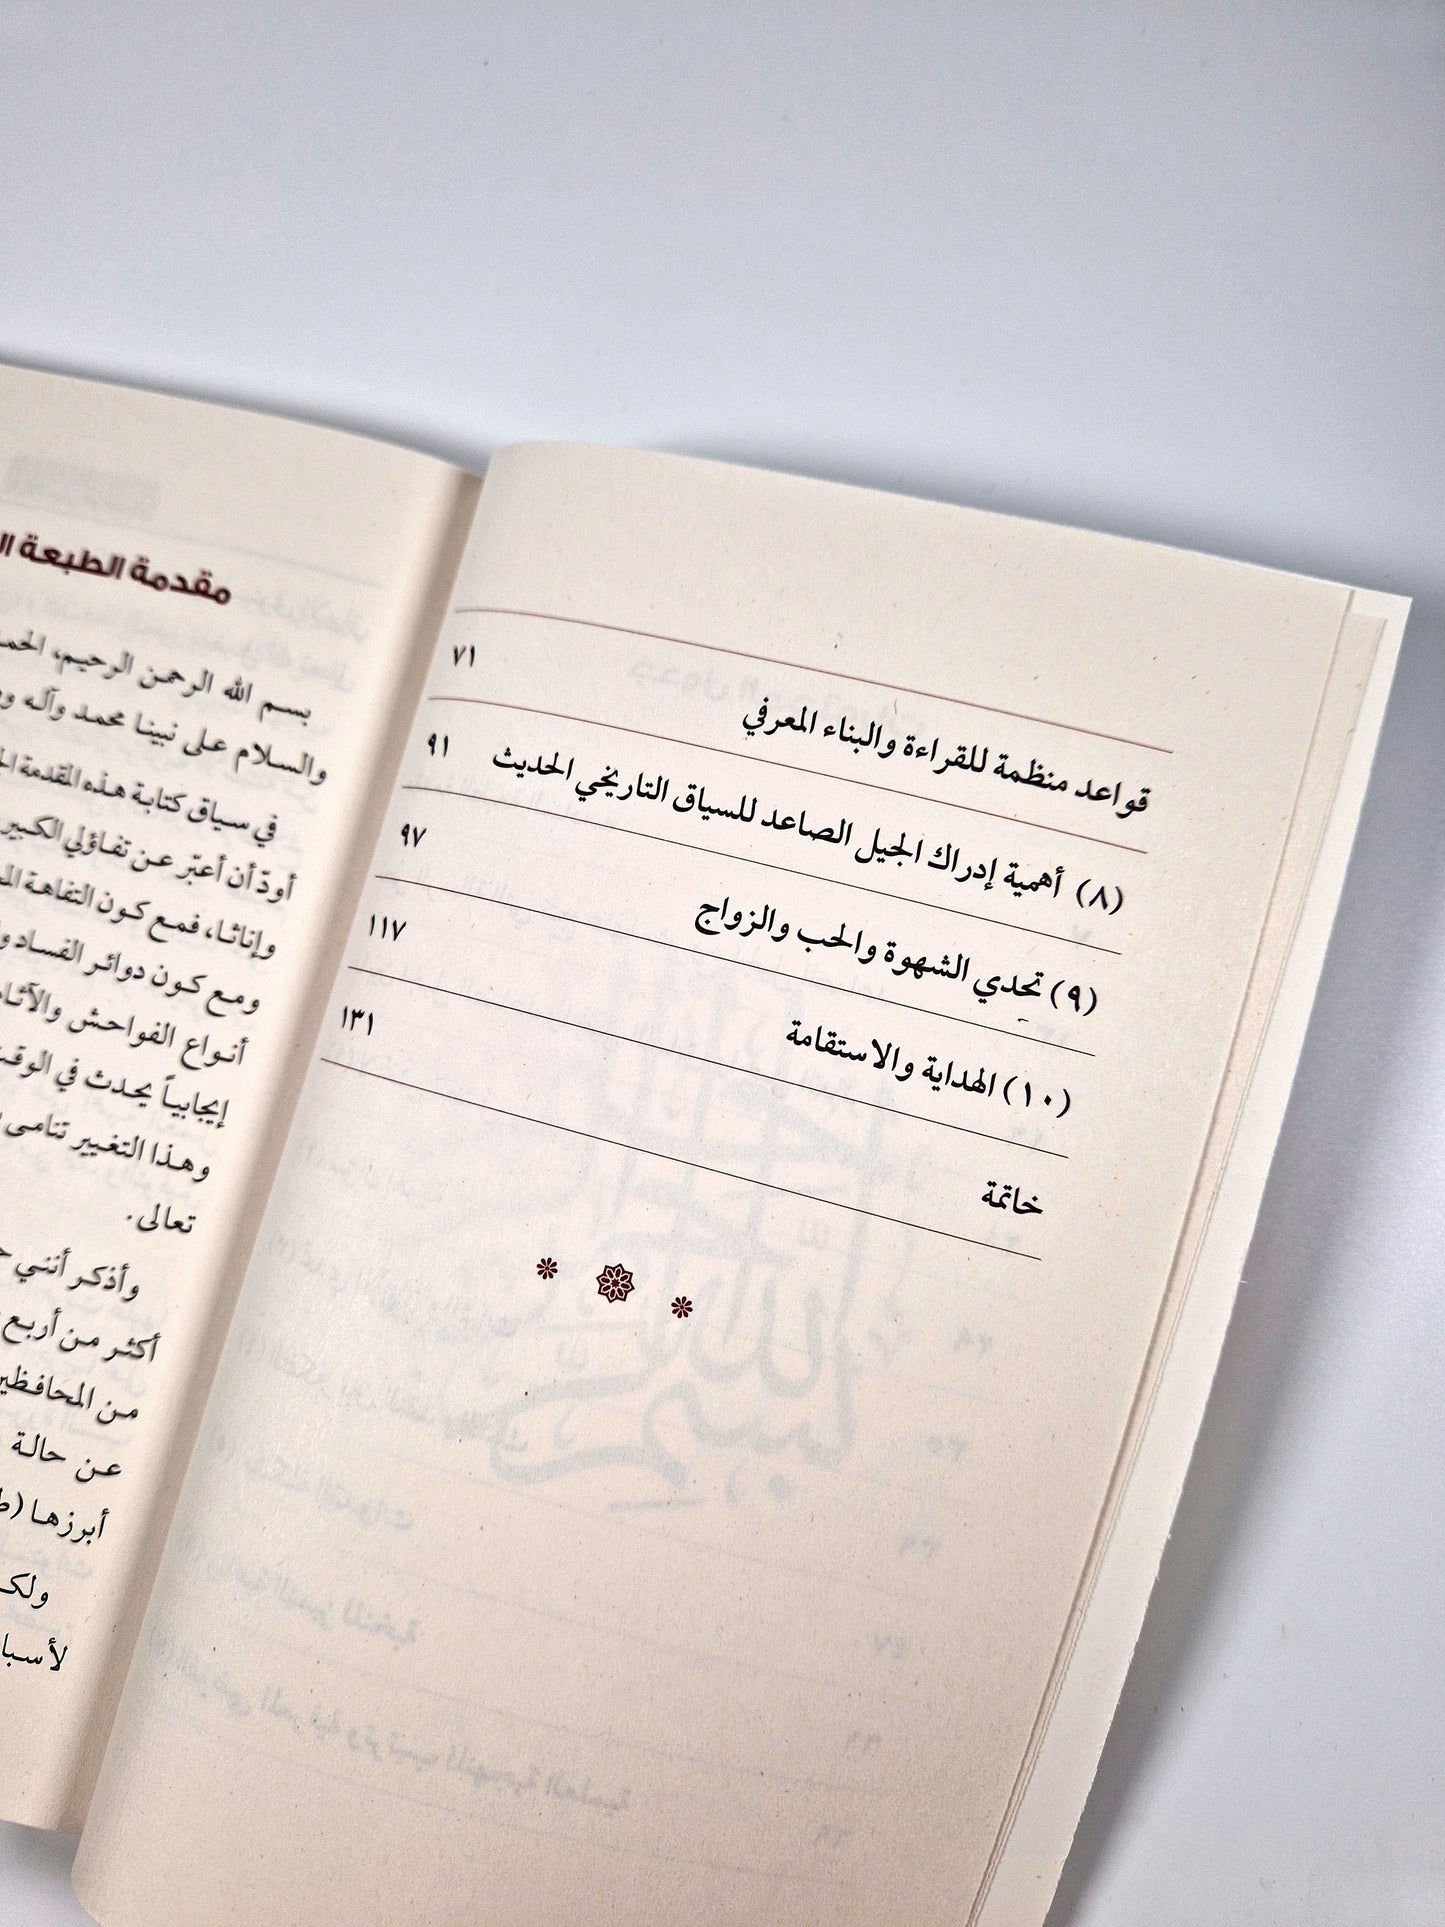 قواعد منظمة للقراءة والبناء المعرفي ٧١
(٨) أهمية إدراك الجيل الصاعد للسياق التاريخي الحديث ٩١
(٩) تحدي الشهوة والحب والزواج ٩٧
(١٠) الهداية والاستقامة ١١٧
خاتمة ١٣١
مقدمة الطبعة
بسم الله الرحمن الرحيم،
والسلام على نبينا محمد وآله
في سياق كتابة هذه المقدمة
أودّ أن أعبّر عن تفاؤلي الكبير
وإناثا، فمع كون التفاهة
ومع كون دوائر الفساد
أنواع الفواحش والآثام
إيجابياً يحدث في الوقت
وهذا التغيير تنامى
تعالى.
وأذكر أنني
أكثر من أربع
من المحافظين
عن حالة
أبرزها